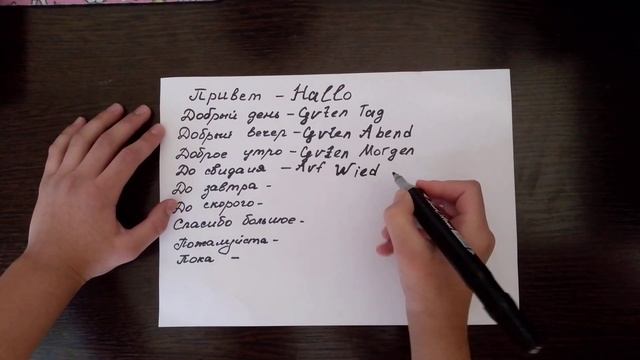 Привет - Hallo
Добрый день - Guten Tag
Добрый вечер - Guten Abend
Доброе утро - Guten Morgen
До свидания - Auf Wied
До завтра -
До скорого -
Спасибо большое -
Пожалуйста -
Пока -